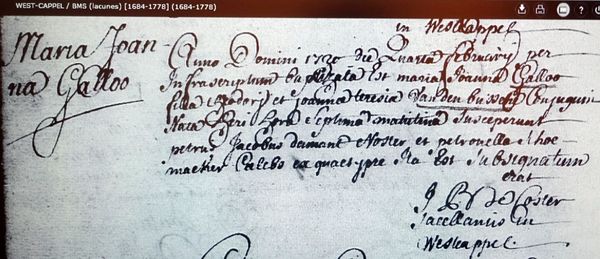 WEST-CAPPEL / BMS (lacunes) [1684-1778] (1684-1778)
in Weskappel
Maria Joan
na Galloo
Anno Domini 1720 die quarta februarij per
Infrascriptum baptizata est maria Joanna Galloo
filia et joanna teresia Vanden bussche Conjugum
Nata heri hora septima matutina Susceperunt
petrus Jacobus damant et petronella
ita est Subsignatum
erat
J B De Coster
Sacellanus in
Weskappel